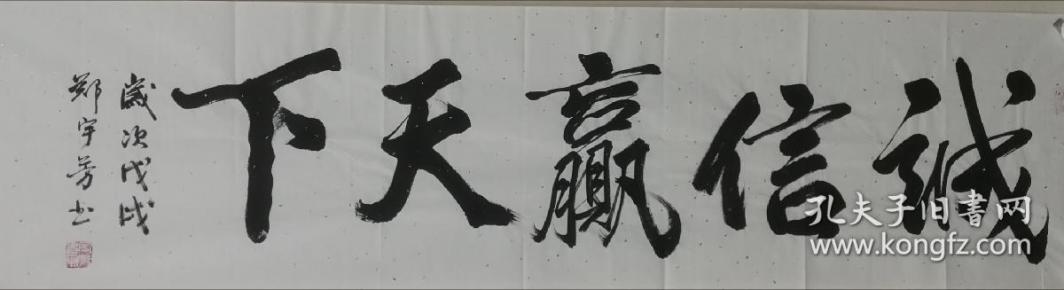 誠信贏天下
歲次戊戌
鄭宇芳书
孔夫子旧書网
www.kongfz.com